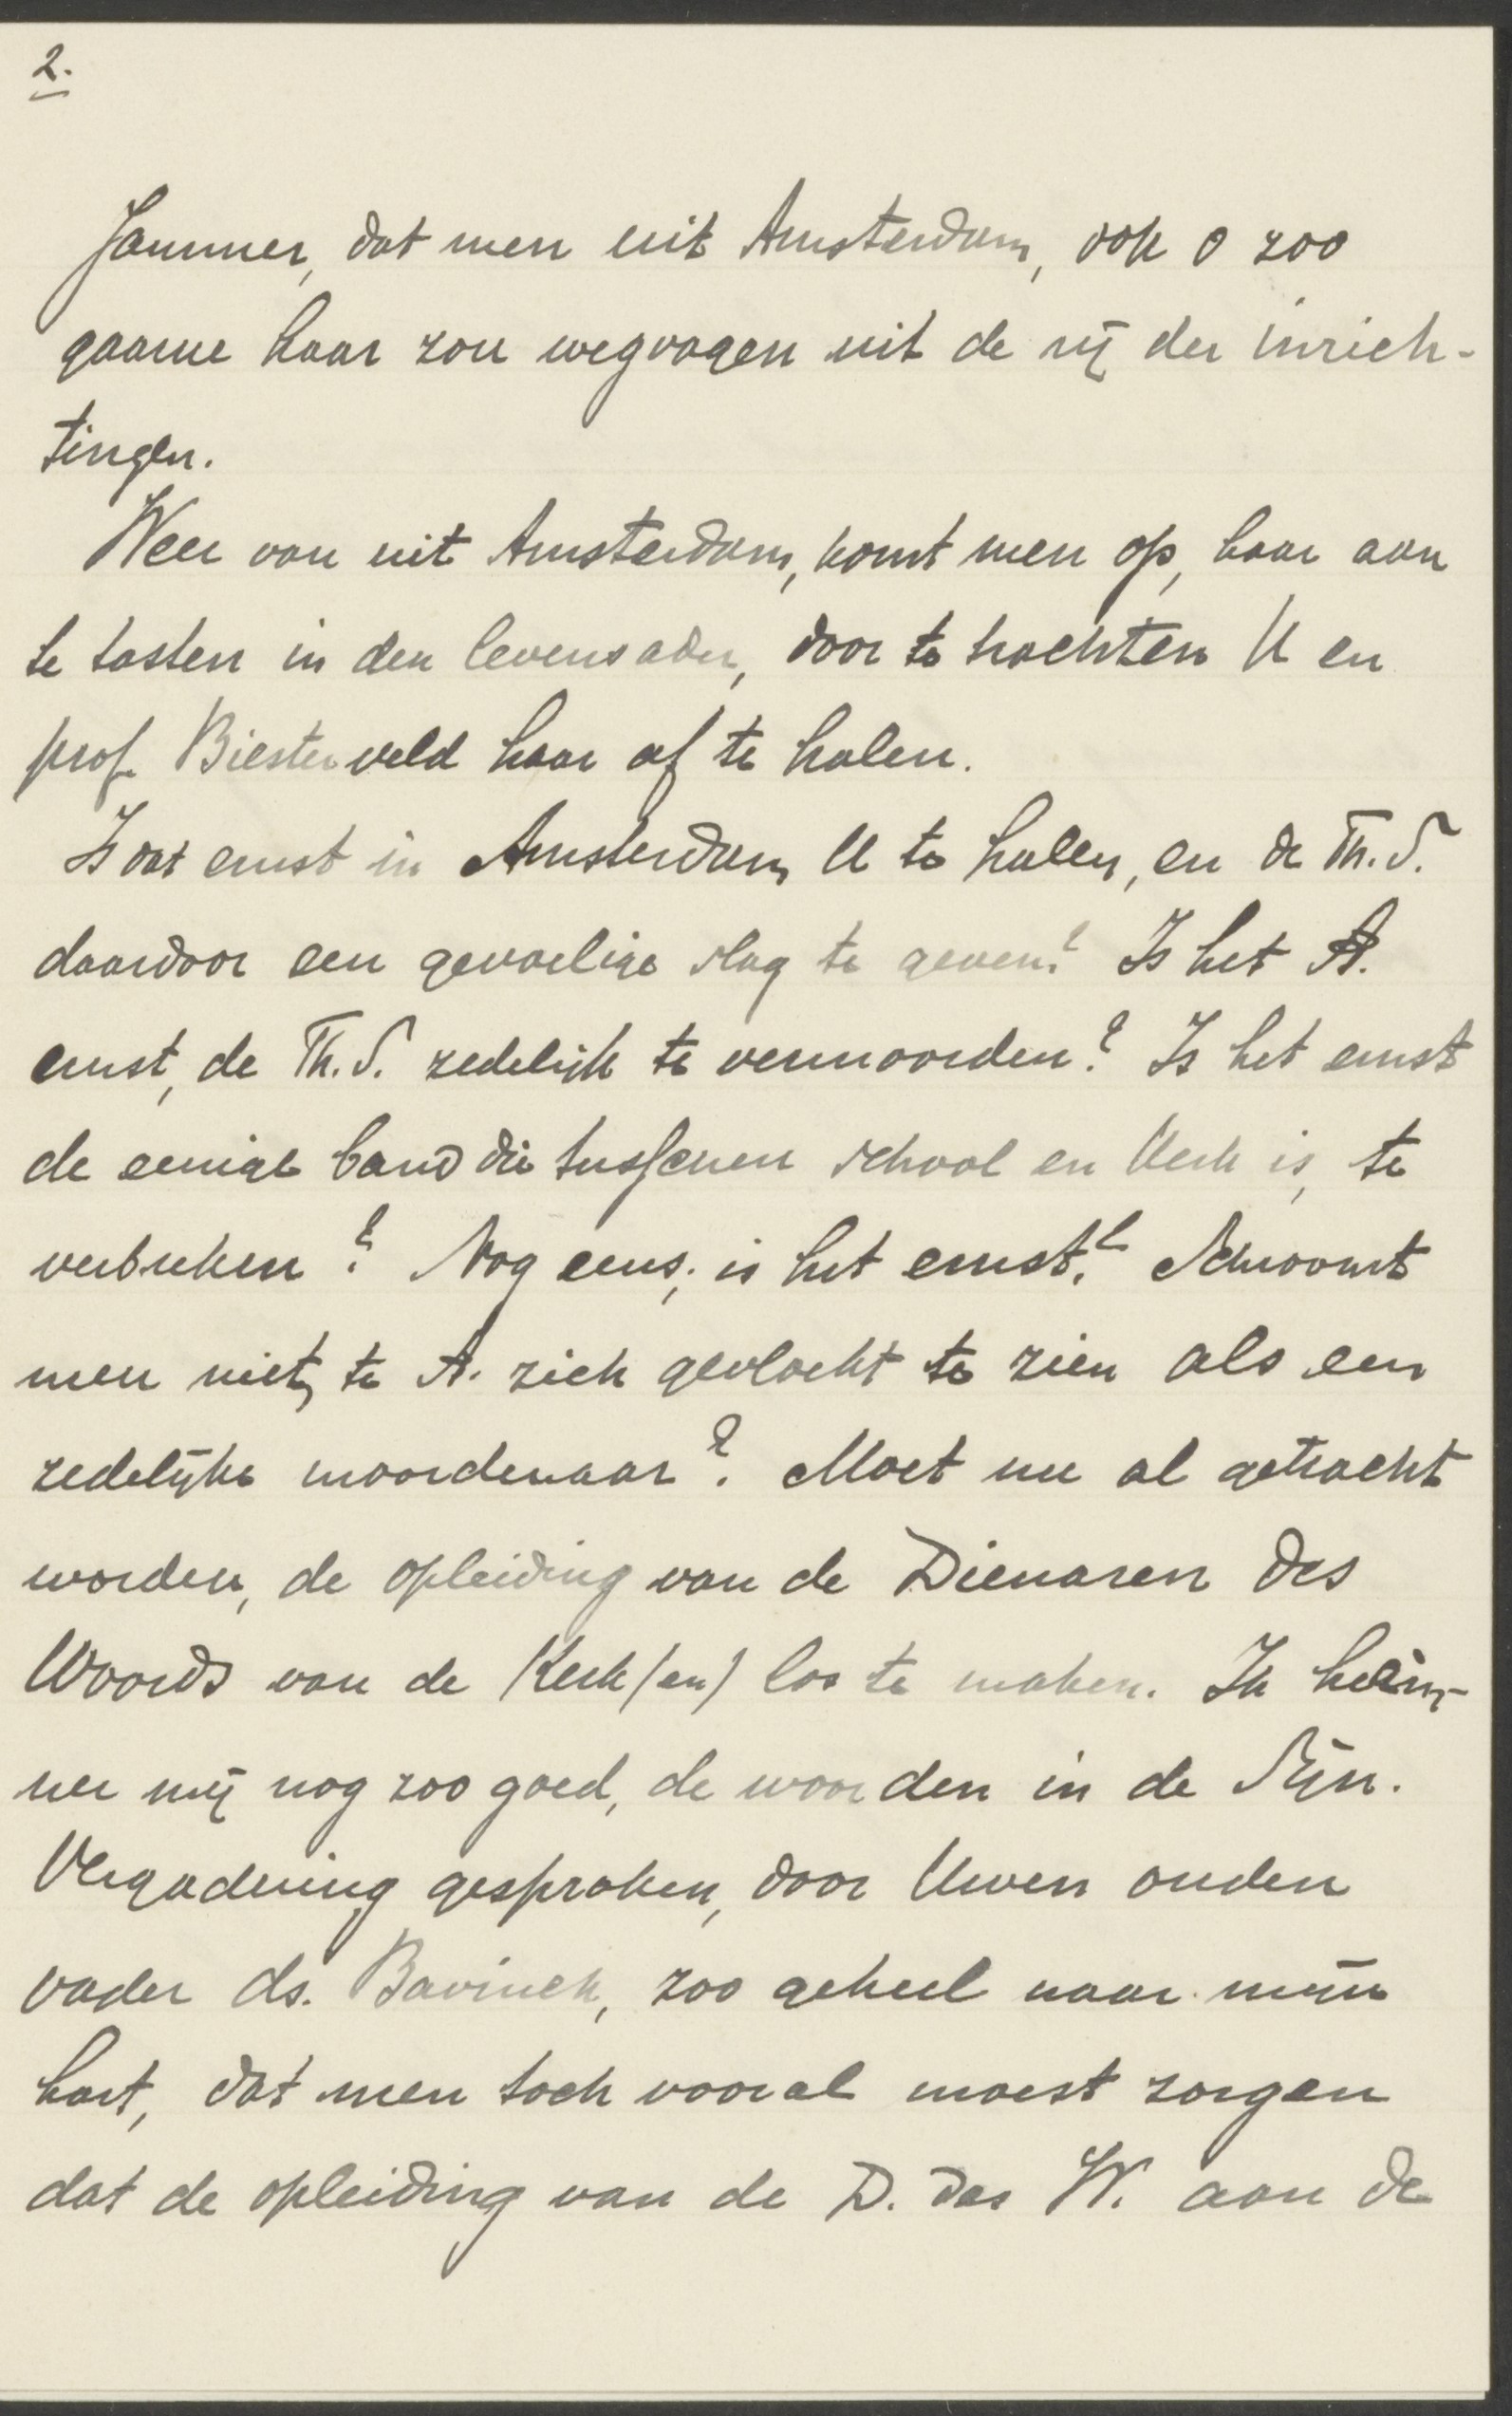 2.
Jammer, dat men uit Amsterdam, ook o zoo
gaarne haar zou wegvagen uit de rij der inrich-
tingen.
Weer van uit Amsterdam, komt men op, haar aan
te tasten in den levensader, door te trachten U en
prof. Biesterveld haar af te halen.
Is dat ernst in Amsterdam U te halen, en de Th. S.
daardoor een gevoelige slag te geven? Is het A.
ernst, de Th. S. zedelijk te vermoorden? Is het ernst
de eenige band die tusschen school en Kerk is, te
verbreken? Nog eens; is het ernst? Schroomt
men niet, te A. zich gevloekt te zien als een
zedelijke moordenaar? Moet nu al getracht
worden, de opleiding van de Dienaren des
Woords van de Kerk(en) los te maken. Ik herin-
ner mij nog zoo goed, de woorden in de Syn.
Vergadering gesproken, door Uwen ouden
vader ds. Bavinck, zoo geheel naar mijn
hart, dat men toch vooral moest zorgen
dat de opleiding van de D. des W. aan de